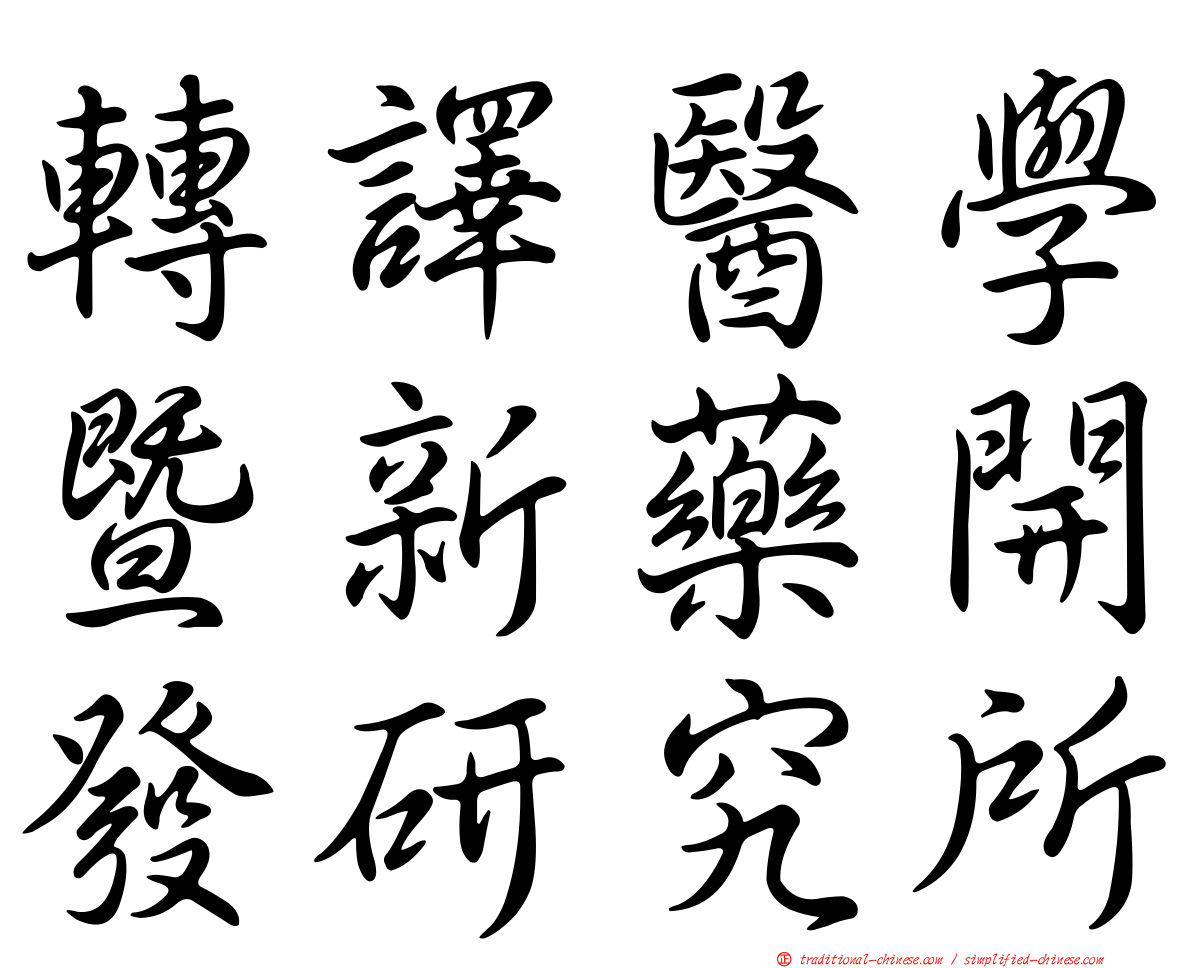 轉譯醫學
暨新藥開
發研究所
正 traditional-chinese.com / simplified-chinese.com